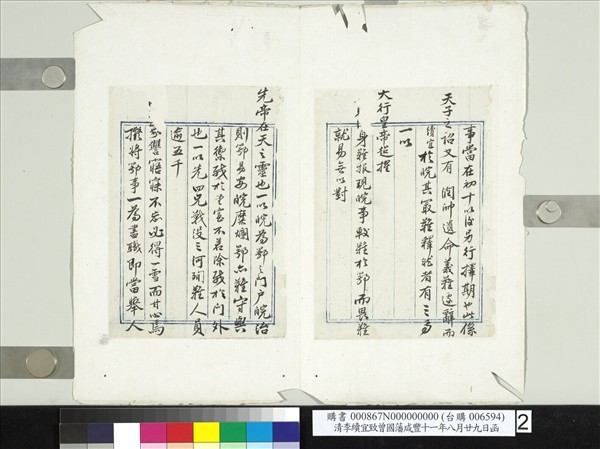 事當在初十以後另行擇期也此係
天子之詔又有 潤帥遺命義難辭而
續宜於皖其最難釋然者有三焉
一以
大行皇帝拔擢
身難報現皖事較難於鄂而畏難
就易無以對
先帝在天之靈也一以皖為鄂之門戶皖治
則鄂易安皖糜爛鄂亦難守與
其禦賊於堂室不若除賊於門外
也一以先四兄戰沒三河殉難人員
逾五千
寤寐不忘得一雪而甘心焉
攤將鄂事一為盡職即當舉人
購書 000867N000000000 (台購 006594)
清李續宜致曾國藩咸豐十一年八月廿九日函
2